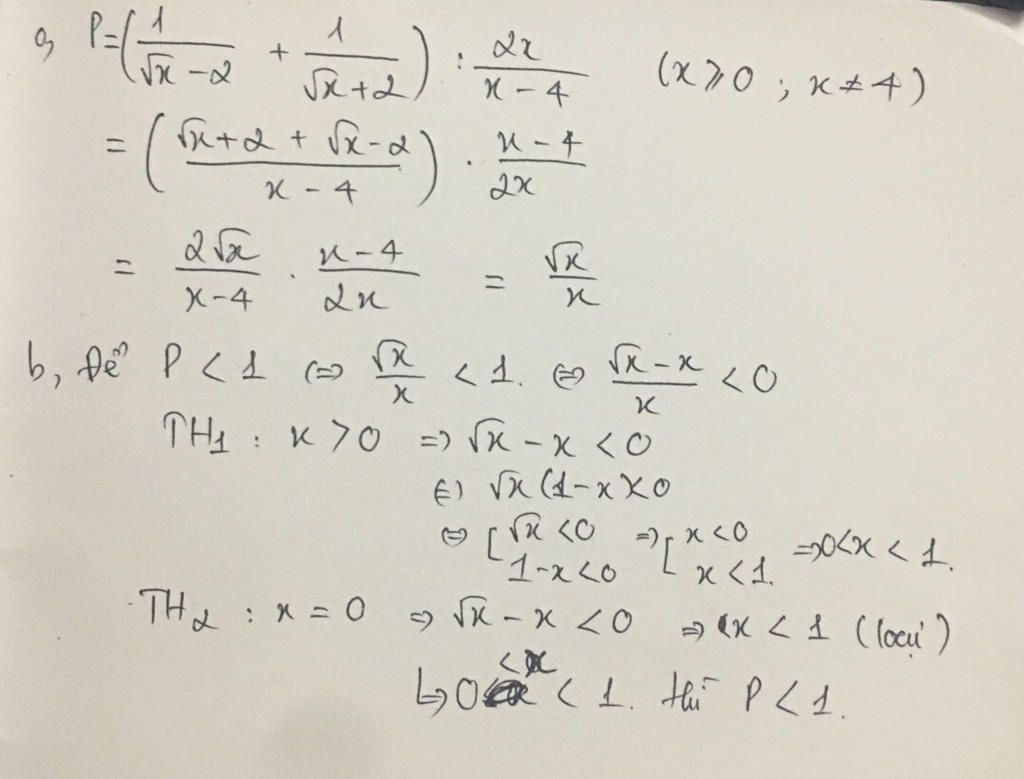 a, P=(1/(√x−2) + 1/(√x+2)) : 2x/(x−4) (x⩾0 ; x≠4)
= ((√x+2 + √x−2)/(x−4)) . (x−4)/2x
= 2√x/(x−4) . (x−4)/2x = √x/x
b, Để P < 1 (=) √x/x < 1. (=) (√x−x)/x < 0
TH1 : x > 0 =) √x − x < 0
(=) √x (1−x) < 0
(=) [ √x < 0 =) [ x < 0 =) 0<x < 1.
1−x < 0 x < 1.
TH2 : x = 0 =) √x − x < 0 =) x < 1 (loại)
↳ 0 <x < 1. thì P < 1.